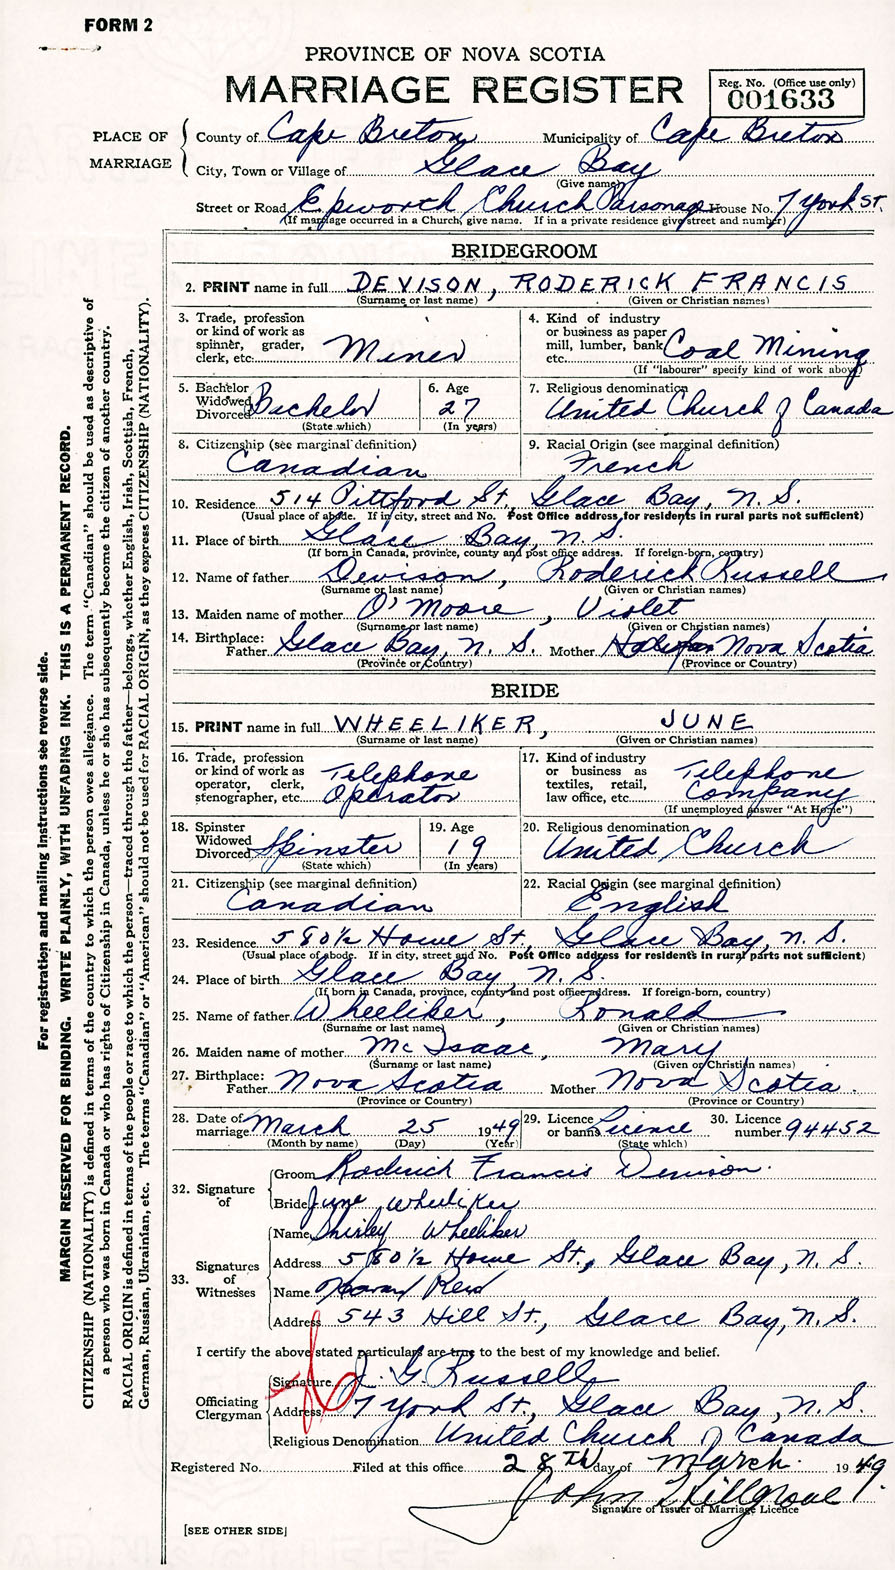 FORM 2
PROVINCE OF NOVA SCOTIA
MARRIAGE REGISTER
Reg. No. (Office use only)
001633
PLACE OF MARRIAGE
County of Cape Breton Municipality of Cape Breton
City, Town or Village of Glace Bay
(Give name)
Street or Road Epworth Church Parsonage House No. 7 York St.
(If marriage occurred in a Church, give name. If in a private residence give street and number)
BRIDEGROOM
2. PRINT name in full DEVISON, RODERICK FRANCIS
(Surname or last name) (Given or Christian names)
3. Trade, profession or kind of work as spinner, grader, clerk, etc. Miner
4. Kind of industry or business as paper mill, lumber, bank etc. Coal Mining
(If "labourer" specify kind of work above)
5. Bachelor Widowed Divorced Bachelor
(State which)
6. Age 27
(In years)
7. Religious denomination
United Church of Canada
8. Citizenship (see marginal definition)
Canadian
9. Racial Origin (see marginal definition)
French
10. Residence 514 Pittford St, Glace Bay, N. S.
(Usual place of abode. If in city, street and No. Post Office address for residents in rural parts not sufficient)
11. Place of birth Glace Bay, N. S.
(If born in Canada, province, county and post office address. If foreign-born, country)
12. Name of father Devison, Roderick Russell
(Surname or last name) (Given or Christian names)
13. Maiden name of mother O'Moore, Violet
(Surname or last name) (Given or Christian names)
14. Birthplace: Father Glace Bay, N. S. Mother Halifax Nova Scotia
(Province or Country) (Province or Country)
BRIDE
15. PRINT name in full WHEELIKER, JUNE
(Surname or last name) (Given or Christian names)
16. Trade, profession or kind of work as operator, clerk, stenographer, etc. Telephone Operator
17. Kind of industry or business as textiles, retail, law office, etc. Telephone Company
(If unemployed answer "At Home")
18. Spinster Widowed Divorced Spinster
(State which)
19. Age 19
(In years)
20. Religious denomination
United Church
21. Citizenship (see marginal definition)
Canadian
22. Racial Origin (see marginal definition)
English
23. Residence 580 1/2 Howe St, Glace Bay, N. S.
(Usual place of abode. If in city, street and No. Post Office address for residents in rural parts not sufficient)
24. Place of birth Glace Bay, N. S.
(If born in Canada, province, county and post office address. If foreign-born, country)
25. Name of father Wheeliker, Ronald
(Surname or last name) (Given or Christian names)
26. Maiden name of mother McIsaac, Mary
(Surname or last name) (Given or Christian names)
27. Birthplace: Father Nova Scotia Mother Nova Scotia.
(Province or Country) (Province or Country)
28. Date of marriage March 25 1949
(Month by name) (Day) (Year)
29. Licence or banns Licence
(State which)
30. Licence number 94452
32. Signature of
Groom Roderick Francis Devison.
Bride June Wheeliker
33. Signatures of Witnesses
Name Shirley Wheeliker
Address 580 1/2 Howe St., Glace Bay, N. S.
Name Reid
Address 543 Hill St., Glace Bay, N. S.
I certify the above stated particulars are true to the best of my knowledge and belief.
Officiating Clergyman
Signature J. G. Russell
Address 7 York St., Glace Bay, N. S.
Religious Denomination United Church of Canada
Registered No. Filed at this office 28TH day of March 1949.
John Hillgrove
Signature of Issuer of Marriage Licence
[SEE OTHER SIDE]
For registration and mailing instructions see reverse side.
MARGIN RESERVED FOR BINDING. WRITE PLAINLY, WITH UNFADING INK. THIS IS A PERMANENT RECORD.
CITIZENSHIP (NATIONALITY) is defined in terms of the country to which the person owes allegiance. The term "Canadian" should be used as descriptive of
a person who was born in Canada or who has rights of Citizenship in Canada, unless he or she has subsequently become the citizen of another country.
RACIAL ORIGIN is defined in terms of the people or race to which the person—traced through the father—belongs, whether English, Irish, Scottish, French,
German, Russian, Ukrainian, etc. The terms "Canadian" or "American" should not be used for RACIAL ORIGIN, as they express CITIZENSHIP (NATIONALITY).